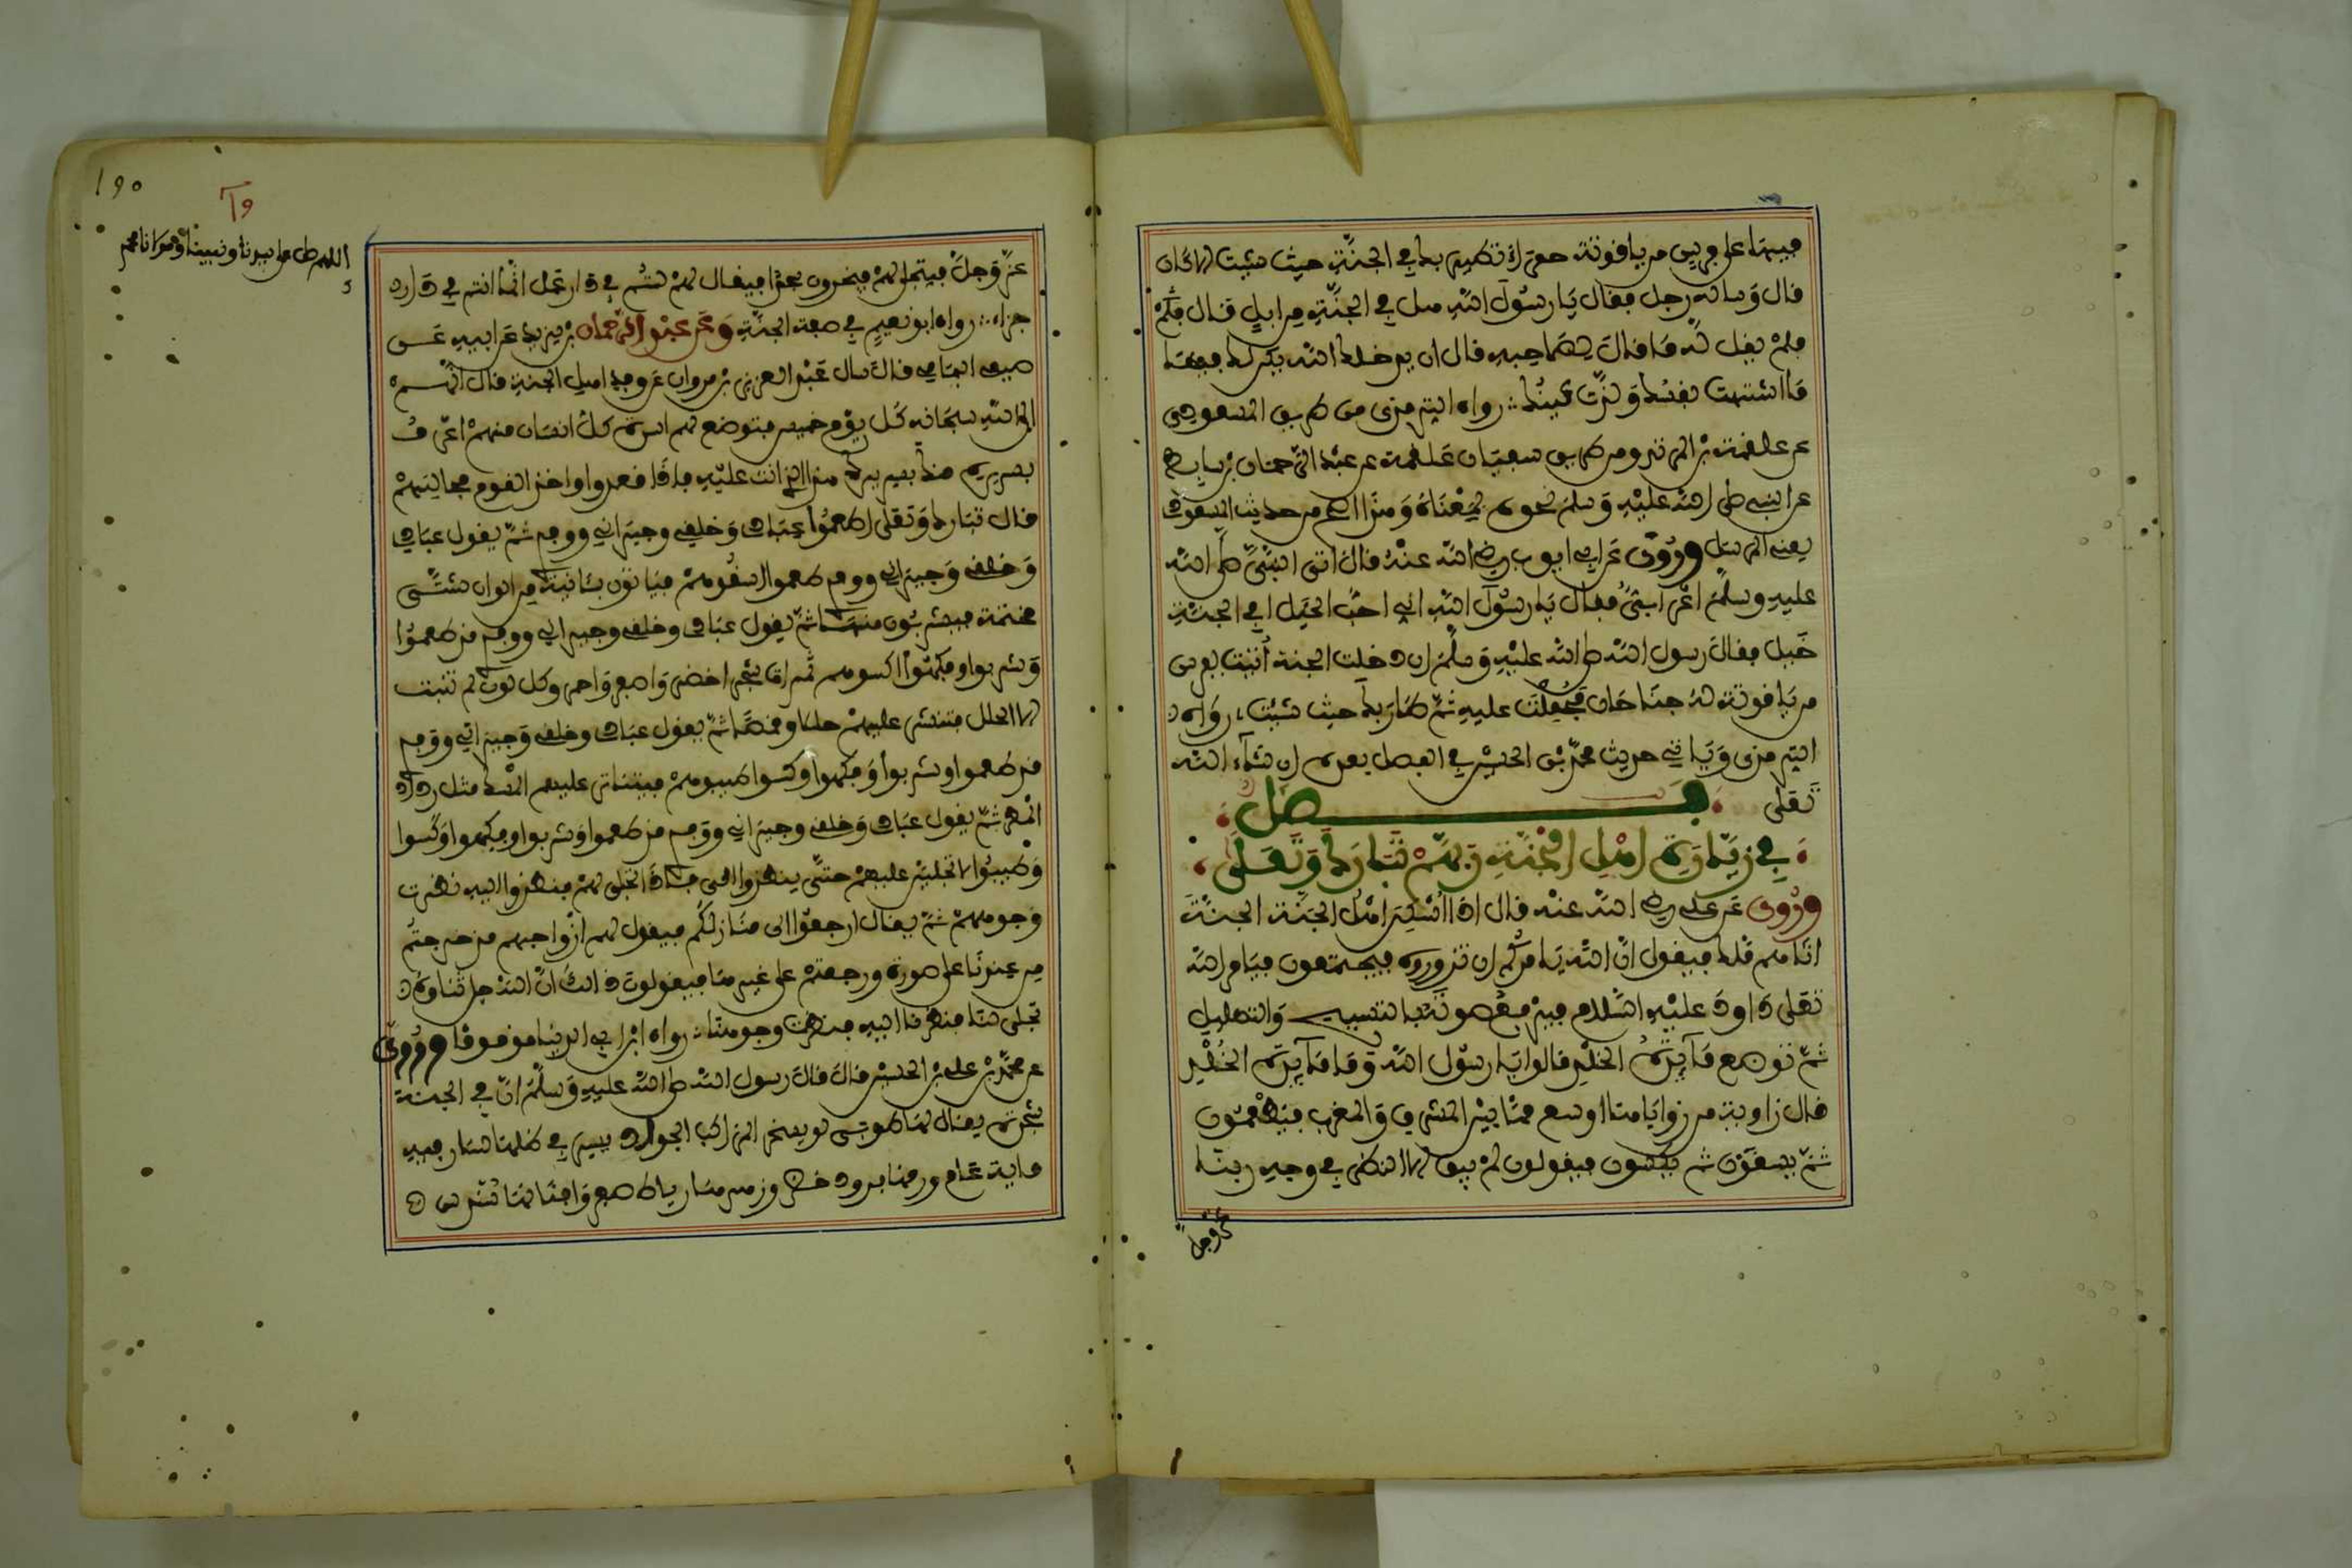 فيها على فرس من ياقوتة حمراء تطير بك في الجنة حيث شئت الا كان
قال وساله رجل فقال يا رسول الله هل في الجنة من ابل قال فلم
فلم يقل له ما قال لصاحبه قال ان يدخلك الله يكن لك فيها
ما اشتهت نفسك ولذت عينك رواه الترمذي من طريق المسعودي
عن علقمة بن مرثد ومن طريق سفيان عن علقمة عن عبد الرحمان بن سابط
عن النبي صلى الله عليه وسلم نحوه بمعناه وهذا اصح من حديث المسعودي
يعني المرسل وروي عن ابي ايوب رضي الله عنه قال اتى النبي صلى الله
عليه وسلم اعرابي فقال يا رسول الله اني احب الخيل افي الجنة
خيل فقال رسول الله صلى الله عليه وسلم ان دخلت الجنة اتيت بفرس
من ياقوتة له جناحان فحملت عليه ثم طار بك حيث شئت رواه
الترمذي وياتي حديث محمد بن الحسين في الفصل بعده ان شاء الله
تعلى فصل
في زيارة اهل الجنة ربهم تبارك وتعلى
وروي عن علي رضي الله عنه قال اذا سكن اهل الجنة الجنة
اتاهم ملك فيقول ان الله يامركم ان تزوروه فيجتمعون فيامر الله
تعلى داود عليه السلام فيرفع صوته بالتسبيح والتهليل
ثم توضع مائدة الخلد قالوا يا رسول الله وما مائدة الخلد
قال زاوية من زواياها اوسع مما بين المشرق والمغرب فيطعمون
ثم يسقون ثم يكسون فيقولون لم يبق الا النظر في وجه ربنا
عز وجل
190
اللهم صل على سيدنا ونبينا ومولانا محمد
عز وجل فيتجلى لهم فيخرون سجدا فيقال لهم لستم في دار عمل انما انتم في دار
جزاء رواه ابو نعيم في صفة الجنة وعن عبد الرحمان بن يزيد عن ابيه عن
صيفي اليمامي قال سال عبد العزيز بن مروان عن وفد اهل الجنة قال انهم
الى الله سبحانه كل يوم خميس فتوضع لهم اسرة كل انسان منهم اعرف
بسريره منك بسريرك هذا الذي انت عليه فاذا قعدوا واخذ القوم مجالسهم
قال تبارك وتعلى اطعموا عبادي وخلقي وجيراني ووفدي ثم يقول عبادي
وخلقي وجيراني ووفدي طعموا اسقوهم فياتون بئانية من الوان شتى
مختمة فيشربون منها ثم يقول عبادي وخلقي وجيراني ووفدي قد طعموا
وشربوا وفكهوا اكسوهم ثمرات شجر اخضر واصفر واحمر وكل لون لم تنبت
الا الحلل فتنشر عليهم حللا وقمصا ثم يقول عبادي وخلقي وجيراني ووفدي
قد طعموا وشربوا وفكهوا وكسوا طيبوهم فيتناثر عليهم المسك مثل رذاذ
المطر ثم يقول عبادي وخلقي وجيراني ووفدي قد طعموا وشربوا وفكهوا وكسوا
وطيبوا لاتجلين عليهم حتى ينظروا الي فاذا تجلى لهم فنظروا اليه نضرت
وجوههم ثم يقال ارجعوا الى منازلكم فيقول لهم ازواجهم قد خرجتم
من عندنا على صورة ورجعتم على غيرها فيقولون ذالك ان الله جل ثناؤه
تجلى لنا فنظرنا اليه فنضرت وجوهنا رواه ابن ابي الدنيا موقوفا وروي
عن محمد بن علي بن الحسين قال قال رسول الله صلى الله عليه وسلم ان في الجنة
شجرة يقال لها طوبى لو يسخر الراكب الجواد يسير في ظلها لسار فيه
ماية عام ورقها برود خضر وزهرها رياط صفر واقناؤها سندس